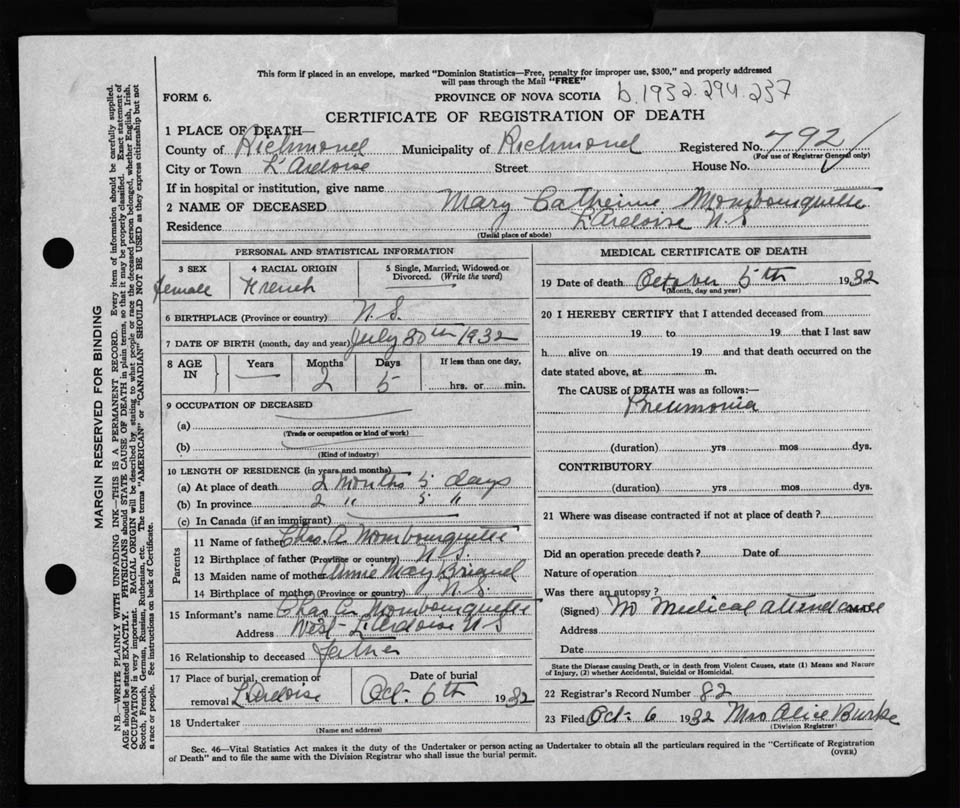 This form if placed in an envelope, marked "Dominion Statistics—Free, penalty for improper use, $300," and properly addressed
will pass through the Mail "FREE"
FORM 6.
PROVINCE OF NOVA SCOTIA b. 1932. 294. 237
CERTIFICATE OF REGISTRATION OF DEATH
1 PLACE OF DEATH—
County of Richmond Municipality of Richmond Registered No. 792
(For use of Registrar General only)
City or Town L'Ardoise Street House No.
If in hospital or institution, give name
2 NAME OF DECEASED Mary Catherine Mombourquette
Residence L'Ardoise N.S
(Usual place of abode)
PERSONAL AND STATISTICAL INFORMATION
3 SEX
female
4 RACIAL ORIGIN
French
5 Single, Married, Widowed or
Divorced. (Write the word)
6 BIRTHPLACE (Province or country) N.S.
7 DATE OF BIRTH (month, day and year) July 30th 1932
8 AGE IN
Years Months Days If less than one day,
2 5 hrs. or min.
9 OCCUPATION OF DECEASED
(a)
(Trade or occupation or kind of work)
(b)
(Kind of industry)
10 LENGTH OF RESIDENCE (in years and months)
(a) At place of death 2 months 5 days
(b) In province 2 " 5 "
(c) In Canada (if an immigrant)
Parents
11 Name of father Chas. A. Mombourquette
12 Birthplace of father (Province or country) N.S.
13 Maiden name of mother Annie May
14 Birthplace of mother (Province or country) N.S.
15 Informant's name Chas A. Mombourquette
Address West L'Ardoise N S
16 Relationship to deceased father
17 Place of burial, cremation or Date of burial
removal L'Ardoise Oct. 6th 1932
18 Undertaker
(Name and address)
MEDICAL CERTIFICATE OF DEATH
19 Date of death October 5th 1932
(Month, day and year)
20 I HEREBY CERTIFY that I attended deceased from
19 to 19 that I last saw
h alive on 19 and that death occurred on the
date stated above, at m.
The CAUSE of DEATH was as follows:—
Pneumonia
(duration) yrs mos dys.
CONTRIBUTORY
(duration) yrs mos dys.
21 Where was disease contracted if not at place of death?
Did an operation precede death? Date of
Nature of operation
Was there an autopsy?
(Signed) No Medical attendance
Address
Date
State the Disease causing Death, or in death from Violent Causes, state (1) Means and Nature
of Injury, (2) whether Accidental, Suicidal or Homicidal.
22 Registrar's Record Number 82
23 Filed Oct. 6 1932 Mrs Alice Burke
(Division Registrar)
Sec. 46—Vital Statistics Act makes it the duty of the Undertaker or person acting as Undertaker to obtain all the particulars required in the "Certificate of Registration
of Death" and to file the same with the Division Registrar who shall issue the burial permit.
(OVER)
MARGIN RESERVED FOR BINDING
N.B.—WRITE PLAINLY WITH UNFADING INK—THIS IS A PERMANENT RECORD. Every item of information should be carefully supplied.
AGE should be stated EXACTLY. PHYSICIANS should STATE CAUSE OF DEATH in plain terms, so that it may be properly classified. Exact statement of
OCCUPATION is very important. RACIAL ORIGIN will be described by stating to what people or race the deceased person belonged, whether English, Irish,
Scotch, French, German, Russian, Ruthenian, etc. The terms "AMERICAN" or "CANADIAN" SHOULD NOT BE USED as they express citizenship but not
a race or people. See instructions on back of Certificate.